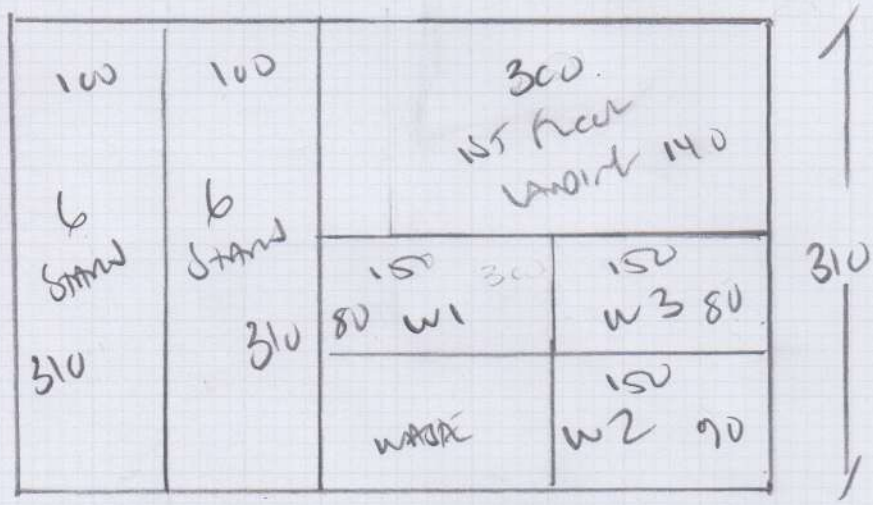 100
6
STAND
310
100
6
STAND
310
300
1ST FLOOR
LANDING 140
150 300
80 W1
150
W3 80
WASTE
150
W2 90
310